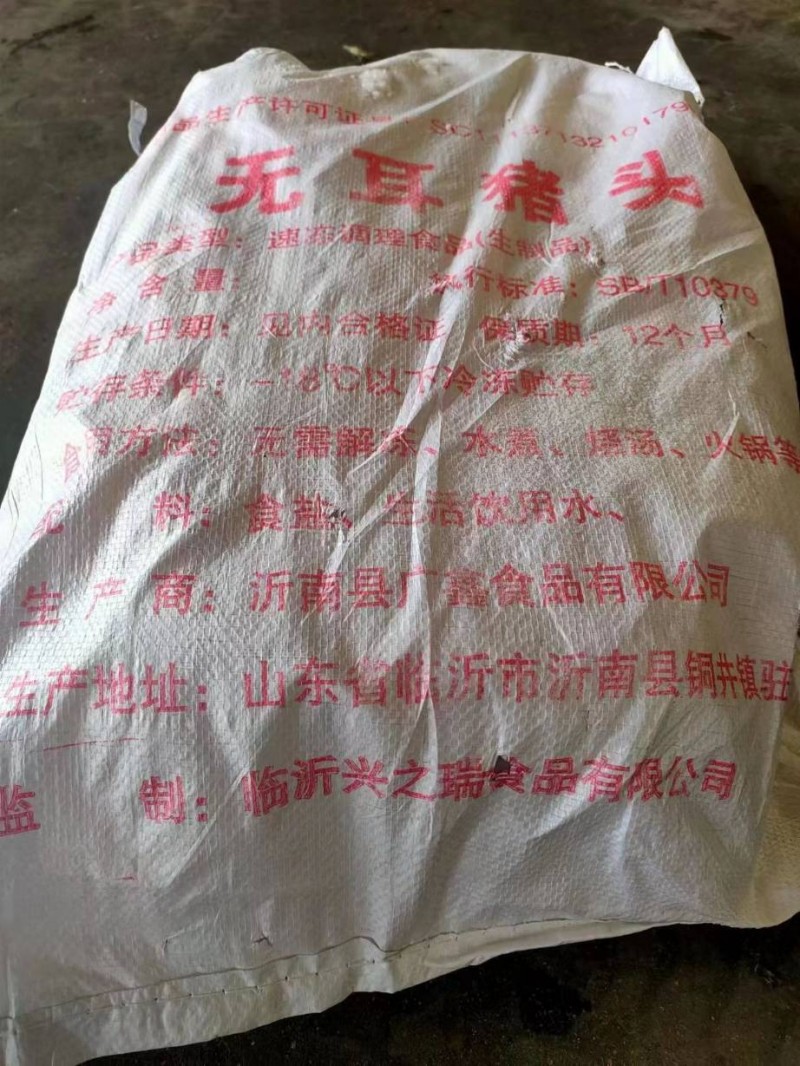 品生产许可证号: SC1113713210179
无耳猪头
产品类型: 速冻调理食品(生制品)
净含量: 执行标准: SB/T10379
生产日期: 见内合格证 保质期: 12个月
贮存条件: -18℃以下冷冻贮存
食用方法: 无需解冻、水煮、煲汤、火锅等
配料: 食盐、生活饮用水、
生产商: 沂南县广鑫食品有限公司
生产地址: 山东省临沂市沂南县铜井镇驻
监制: 临沂兴之瑞食品有限公司